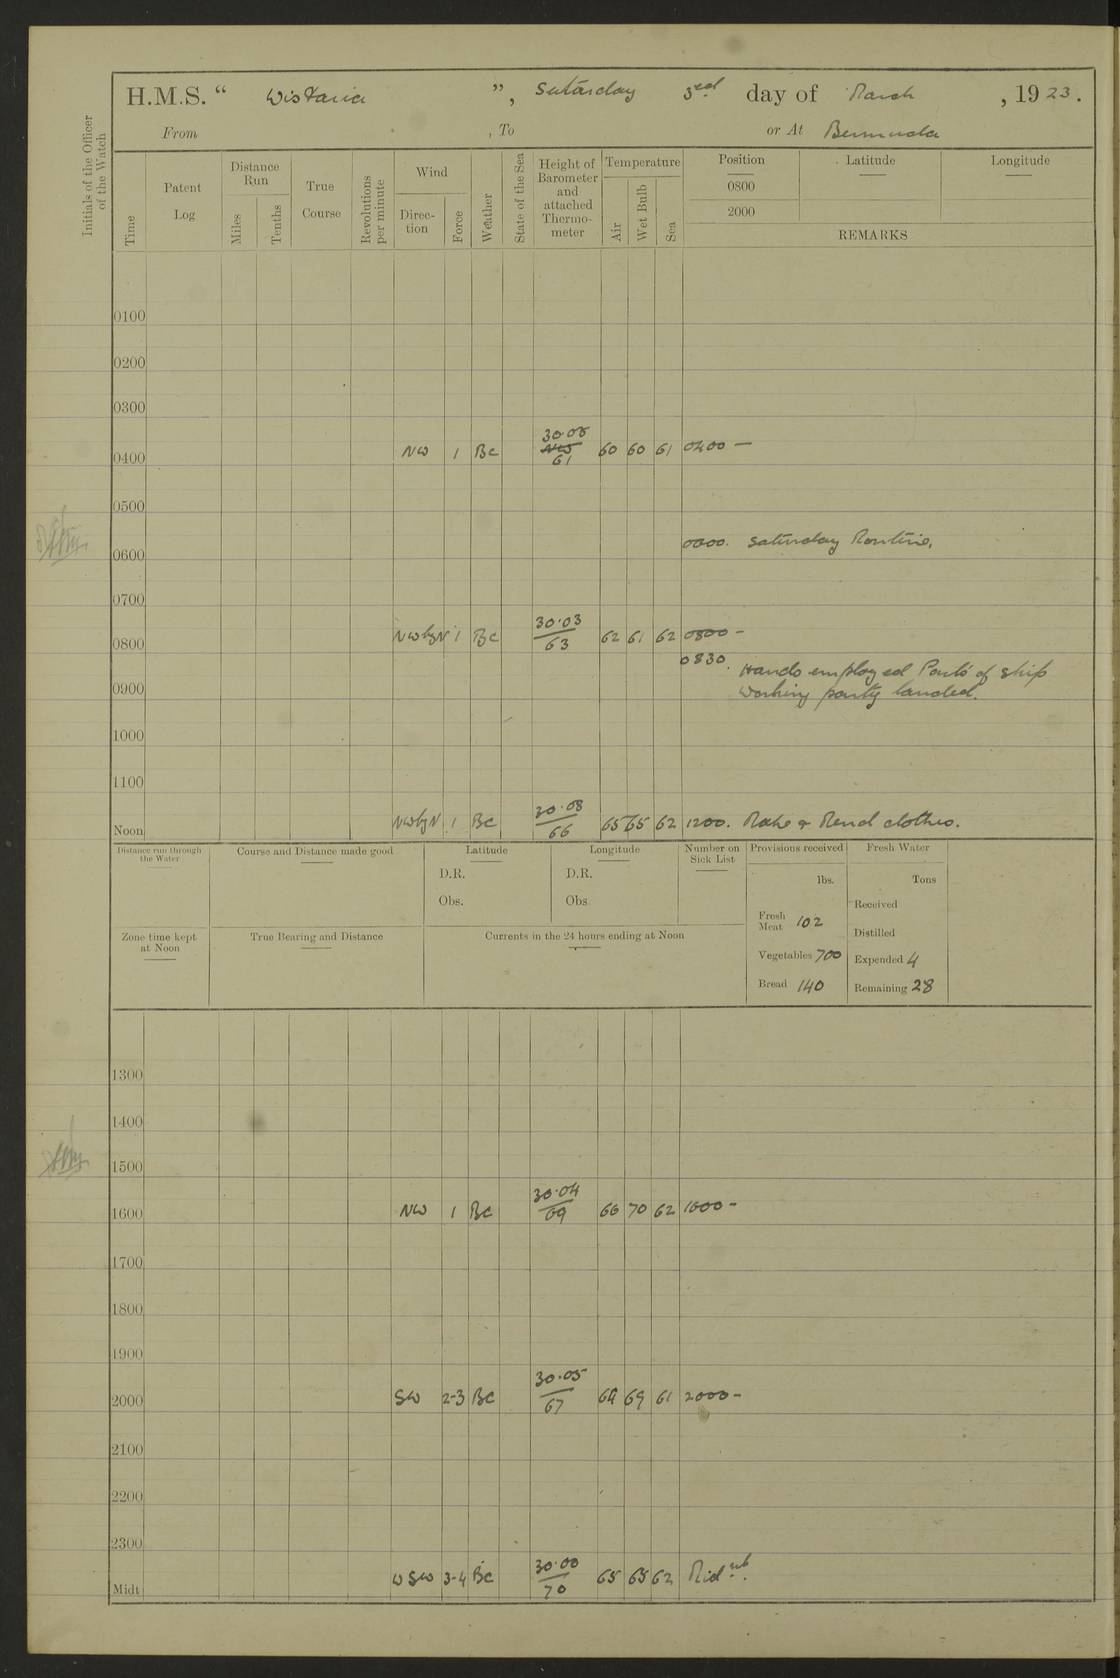 H.M.S. “ Wistaria ”, Saturday 3rd day of March , 1923.
From , To or At Bermuda
Initials of the Officer of the Watch
Time
Patent Log
Distance Run
Miles
Tenths
True Course
Revolutions per minute
Wind
Direc- tion
Force
Weather
State of the Sea
Height of Barometer and attached Thermo- meter
Temperature
Air
Wet Bulb
Sea
Position Latitude Longitude
0800
2000
REMARKS
0100
0200
0300
0400 NW 1 Bc 30.08 61 60 60 61 0400 —
0500
0600 0600. Saturday Routine.
0700
0800 NWbyN 1 Bc 30.03 63 62 61 62 0800 -
0830. Hands employed Parts of ship
0900 Working party landed.
1000
1100
Noon NWbyN 1 Bc 30.08 66 65 65 62 1200. Make & Mend clothes.
Distance run through the Water
Course and Distance made good
Latitude
D.R.
Obs.
Longitude
D.R.
Obs
Number on Sick List
Provisions received
lbs.
Fresh Meat 102
Vegetables 700
Bread 140
Fresh Water
Tons
Received
Distilled
Expended 4
Remaining 28
Zone time kept at Noon
True Bearing and Distance
Currents in the 24 hours ending at Noon
1300
1400
1500
1600 NW 1 Bc 30.04 69 66 70 62 1600 -
1700
1800
1900
2000 SW 2-3 Bc 30.05 67 64 69 61 2000 -
2100
2200
2300
Midt WSW 3-4 Bc 30.00 70 65 65 62